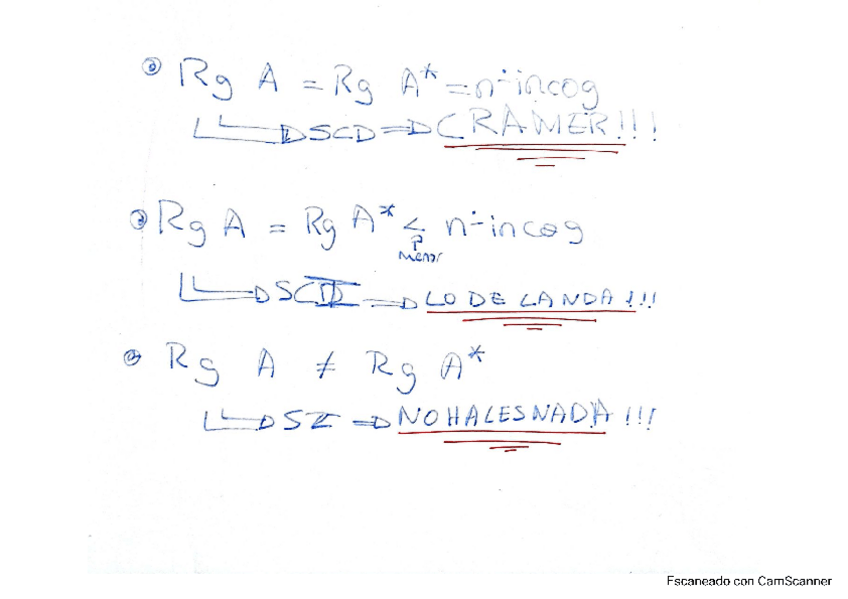 Rg A = Rg A* = nº incog
SCD ⇒ CRAMER!!!
Rg A = Rg A* < nº incog
menor
SCI ⇒ LO DE LANDA!!!
Rg A ≠ Rg A*
SI ⇒ NO HALES NADA!!!
Escaneado con CamScanner